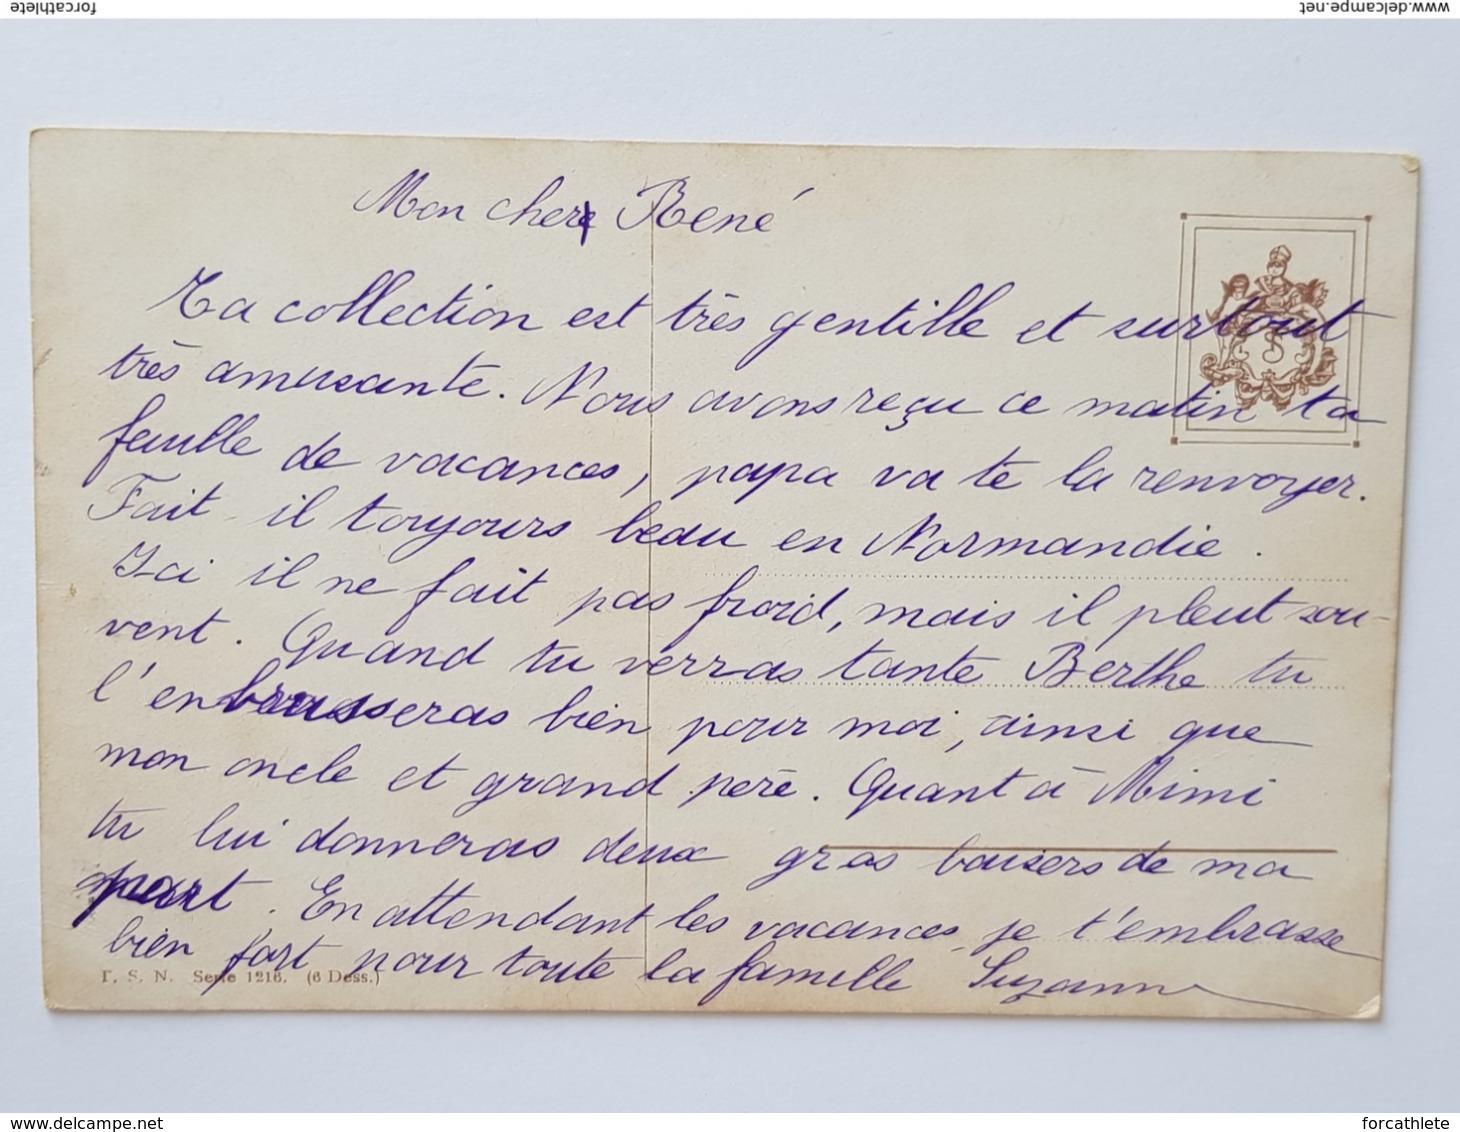 forcathlete www.delcampe.net
Mon cher René
Ta collection est très gentille et surtout
très amusante. Nous avons reçu ce matin ta
feuille de vacances, papa va te la renvoyer.
Fait-il toujours beau en Normandie.
Ici il ne fait pas froid, mais il pleut sou-
vent. Quand tu verras tante Berthe tu
l'enbrasseras bien pour moi, ainsi que
mon oncle et grand père. Quant à Mimi
tu lui donneras deux gros baisers de ma
part. En attendant les vacances, je t'embrasse
bien fort pour toute la famille Suzanne
T. S. N. Serie 1216. (6 Dess.)
www.delcampe.net forcathlete